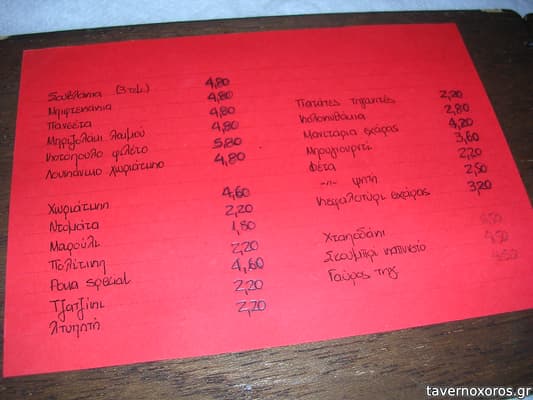 Σουβλάκια (3 τεμ.) 4,80
Μπιφτεκάκια 4,80
Πανσέτα 4,80
Μπριζολάκι λαιμού 4,80
Κοτόπουλο φιλέτο 5,80
Λουκάνικο χωριάτικο 4,80
Χωριάτικη 4,60
Ντομάτα 2,20
Μαρούλι 1,80
Πολίτικη 2,20
Ρόκα special 4,60
Τζατζίκι 2,20
Χτυπητή 2,20
Πατάτες τηγανιτές 2,20
Κολοκυθάκια 2,80
Μανιτάρια σχάρας 4,20
Μπουγιουρντί 3,60
Φέτα 2,20
-//- ψητή 2,50
Κεφαλοτύρι σχάρας 3,20
Χταποδάκι
Σκουμπρί καπνιστό 4,50
Γαύρος τηγ. 4,50
tavernoxoros.gr